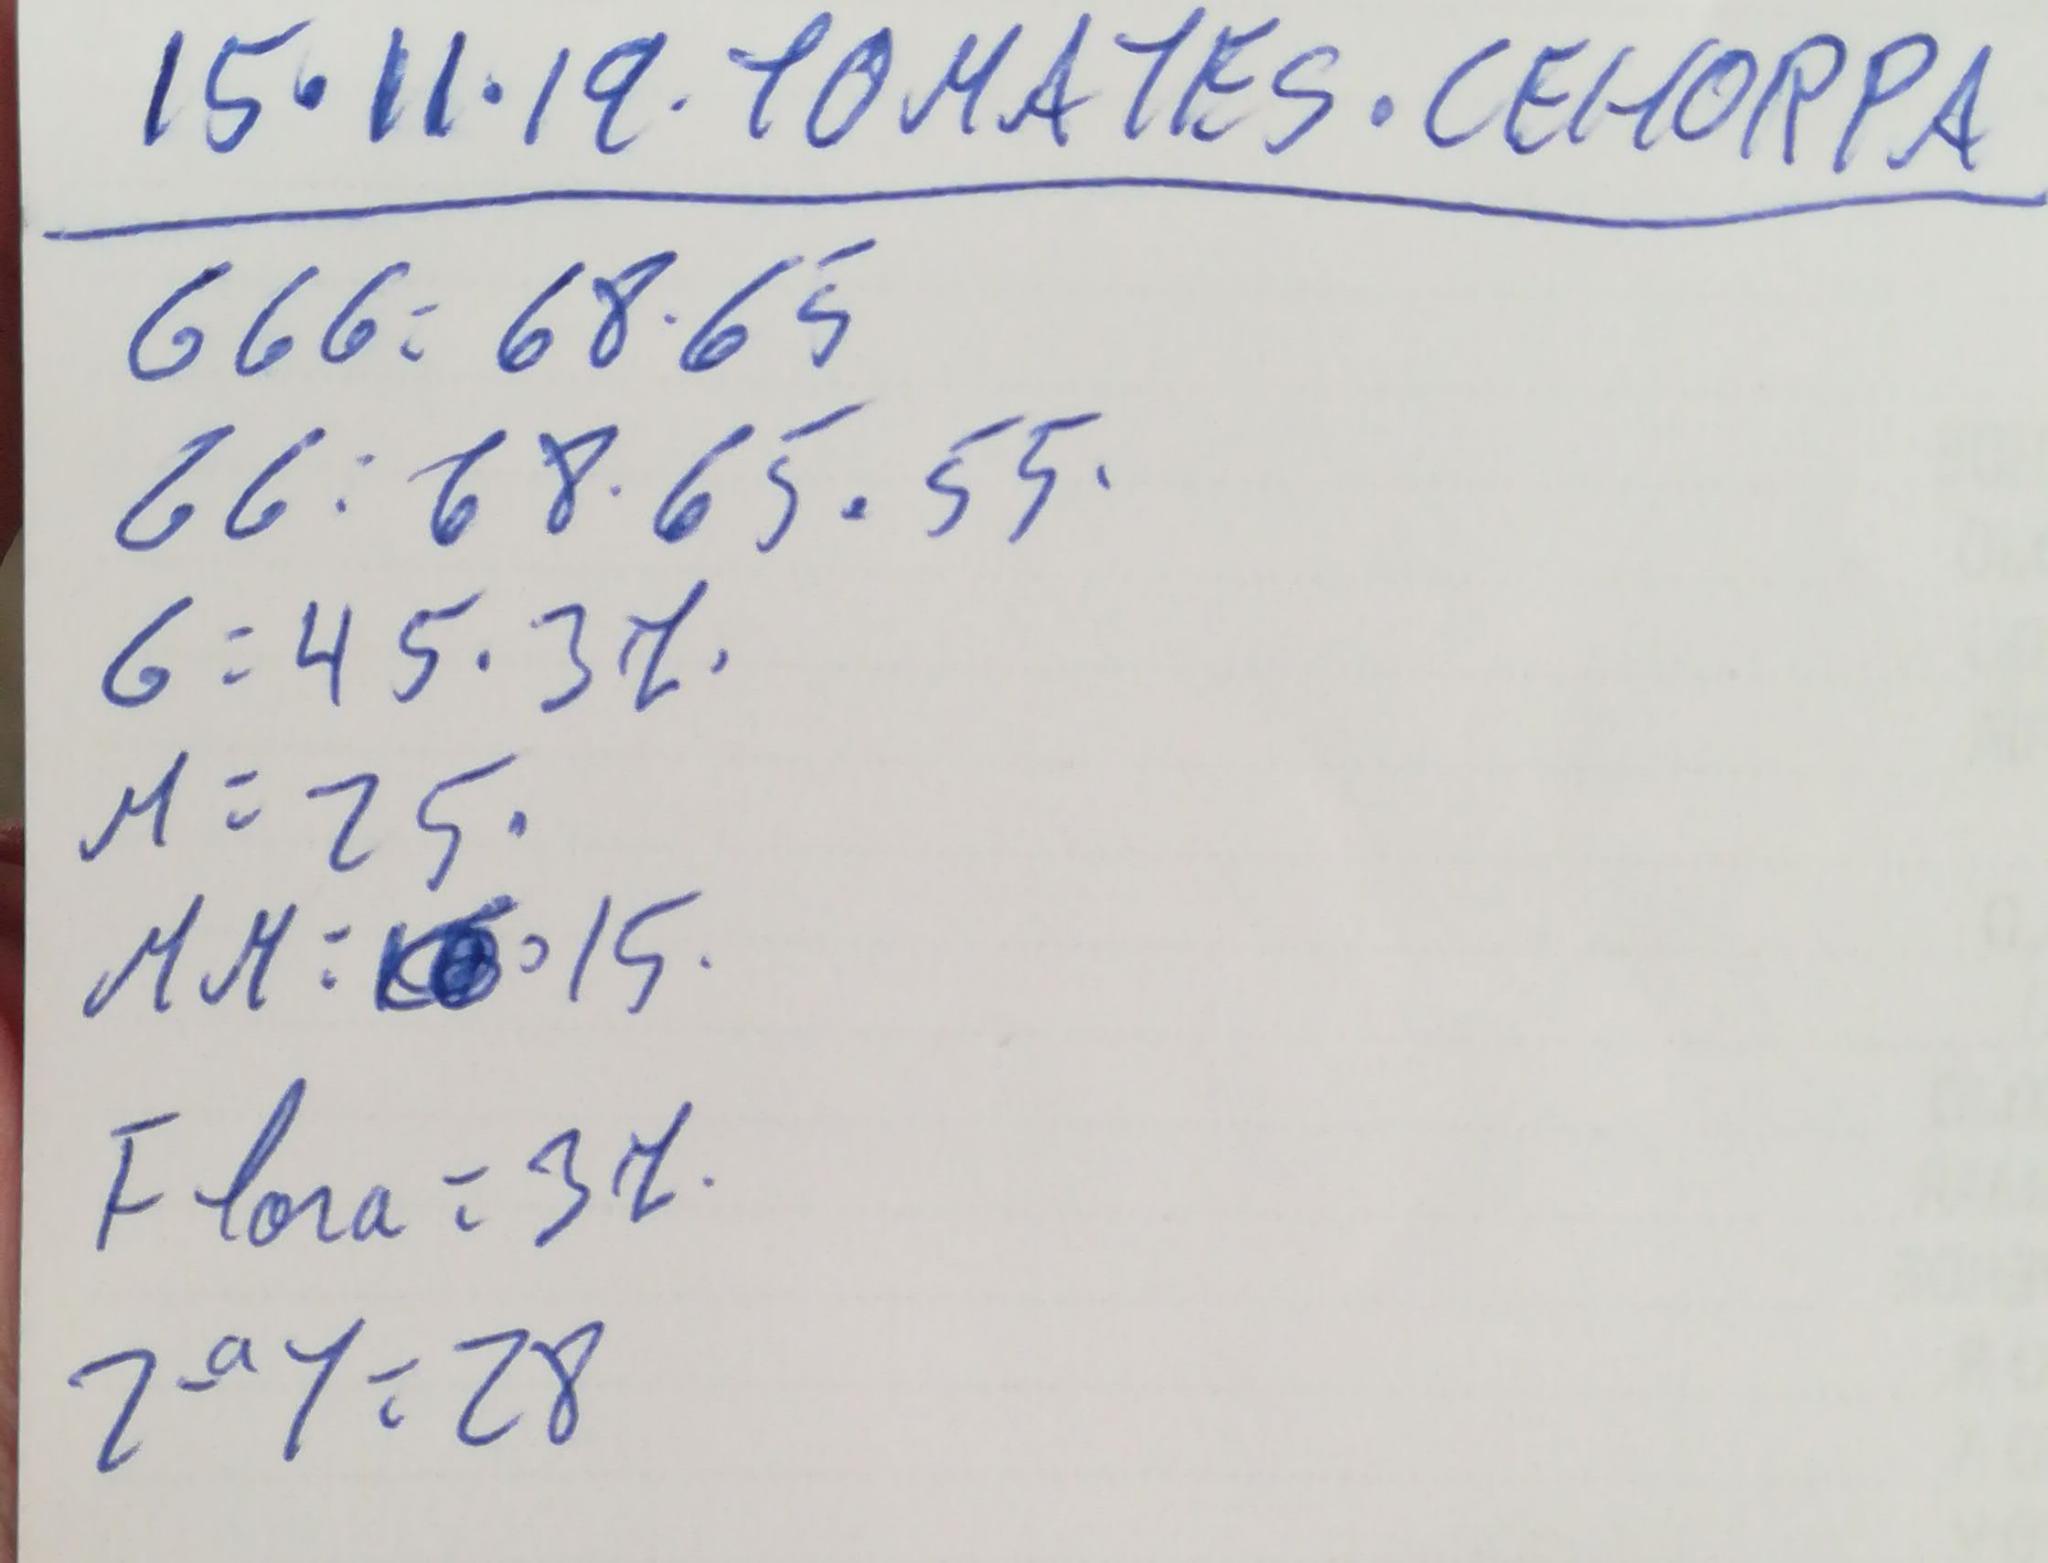 15.11.19. TOMATES. CEHORPA
GGG= 68.65
GG: 68.65.55.
G=45.37.
M=25.
MM= 15.
Flora=37.
2ªT=28